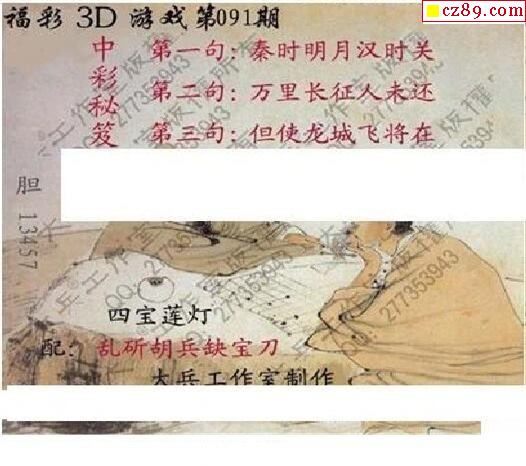 cz89.com
福彩 3D 游戏第091期
中彩秘笈
第一句：秦时明月汉时关
第二句：万里长征人未还
第三句：但使龙城飞将在
胆 13457
四宝莲灯
配：乱斫胡兵缺宝刀
大兵工作室制作
大兵工作室版权所有
QQ：277353943